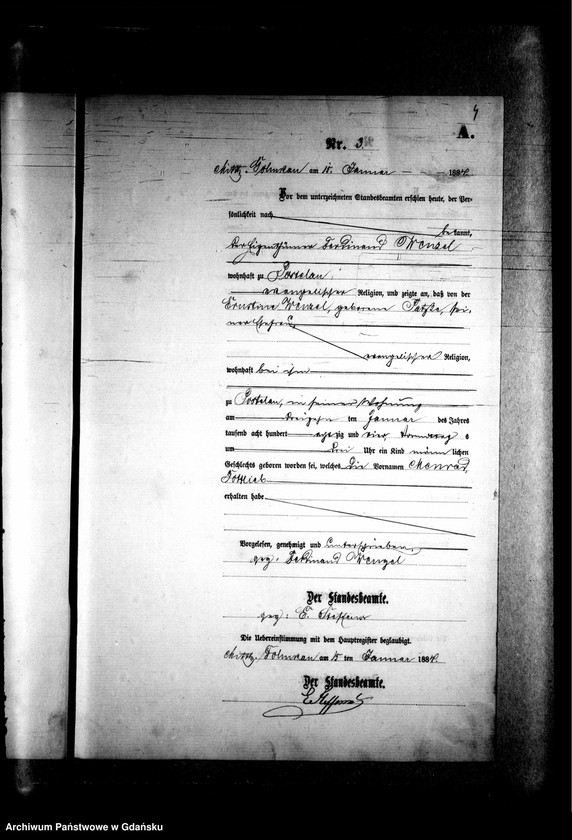 4
A.
Nr. 3.
Tolmkau am 18. Januar 1884.
Vor dem unterzeichneten Standesbeamten erschien heute, der Per-
sönlichkeit nach
bekannt,
der Eigenthümer Ferdinand Wenzel
wohnhaft zu Postelau
evangelischer Religion, und zeigte an, daß von der
Ernstine Wenzel, geborene sei-
ner Ehefrau
evangelischer Religion,
wohnhaft bei ihm
zu Postelau, in seiner Wohnung
am dreizehn ten Januar des Jahres
tausend acht hundert achtzig und vier, Vormittag s
um drei Uhr ein Kind männ lichen
Geschlechts geboren worden sei, welches die Vornamen
Gottlieb
erhalten habe
Vorgelesen, genehmigt und unterschrieben
gez: Ferdinand Wenzel
Der Standesbeamte.
gez: E. Steffens
Die Uebereinstimmung mit dem Hauptregister beglaubigt.
Tolmkau am 18 ten Januar 1884.
Der Standesbeamte.
E. Steffens
Archiwum Państwowe w Gdańsku